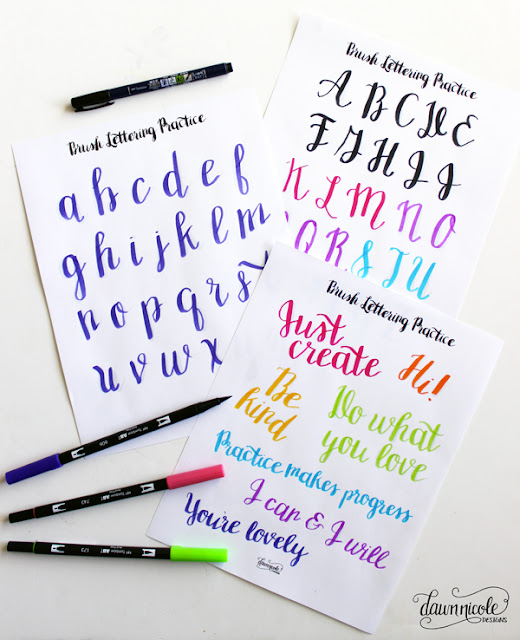 Brush Lettering Practice
a b c d e f
g h i j k l m
n o p q r s
u v w x
Brush Lettering Practice
A B C D E
F G H I J
K L M N O
Q R S T U
Brush Lettering Practice
Just
create
Hi!
Be
kind
Do what
you love
Practice makes progress
I can & I will
You're lovely
dawnnicole
DESIGNS
dawnnicole
DESIGNS